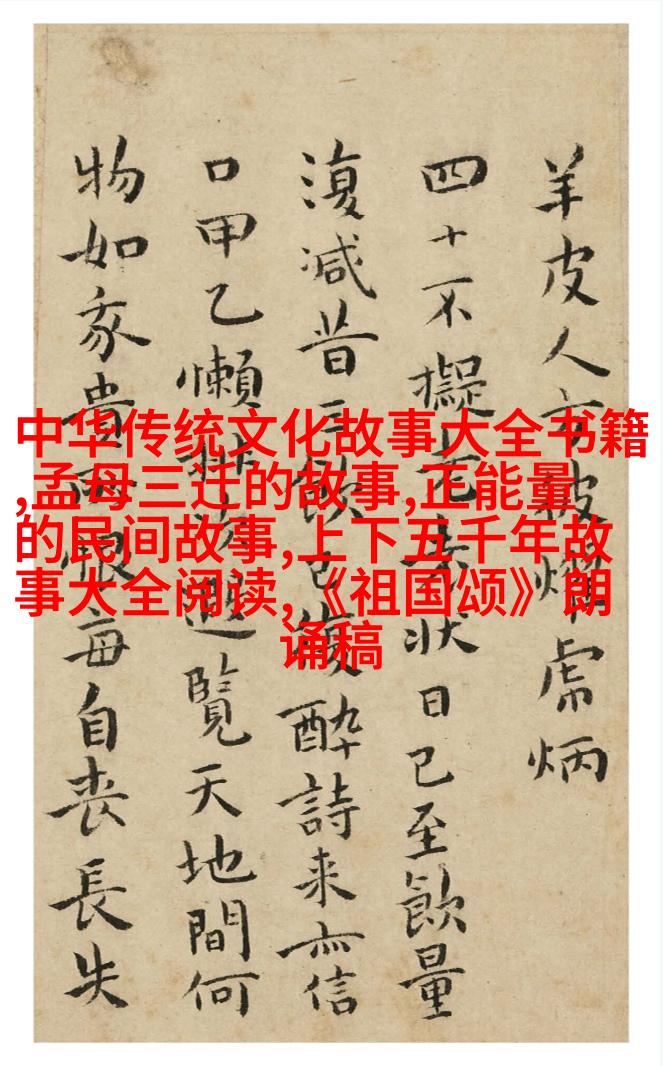 中华传统文化故事大全书籍
,孟母三迁的故事,正能量
的民间故事,上下五千年故
事大全阅读,《祖国颂》朗
诵稿
羊皮人亦被虎炳
四十不擬老衰狀日已至飲量
復減昔三飲已復醉詩来亦信
口甲乙懶覽天地間何
物如貴恨每自丧長失